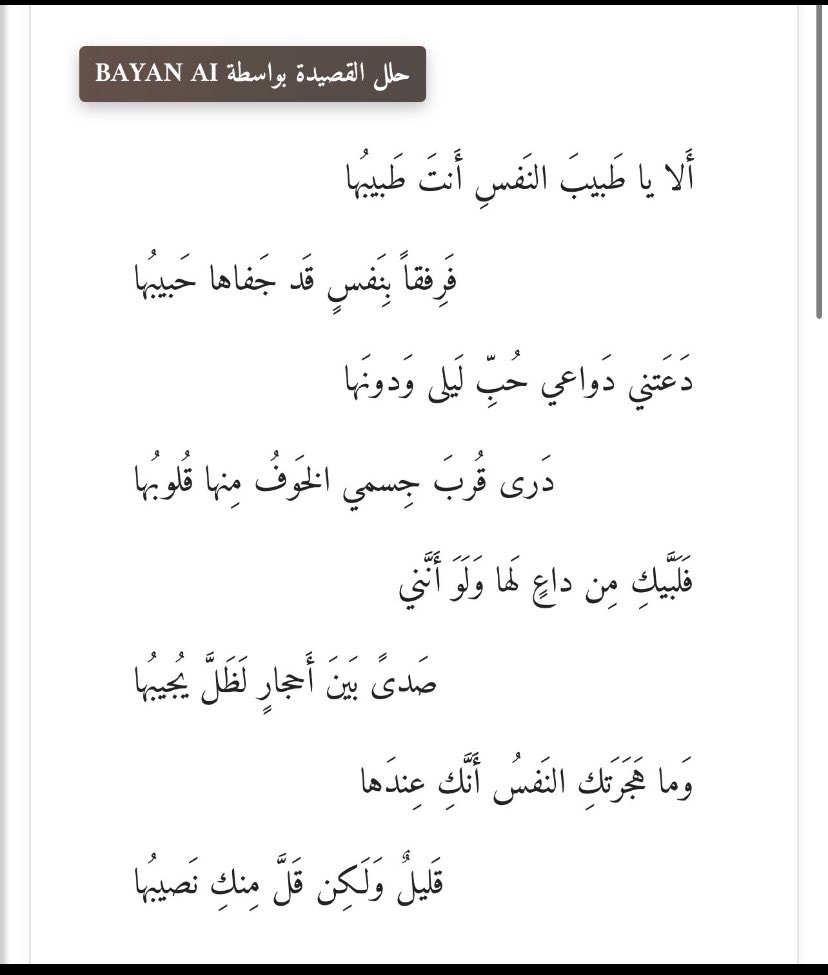 حلل القصيدة بواسطة BAYAN AI
أَلا يا طَبيبَ النَفسِ أَنتَ طَبيبُها
فَرِفقاً بِنَفسٍ قَد جَفاها حَبيبُها
دَعَتني دَواعي حُبِّ لَيلى وَدونَها
دَرى قُربَ جِسمي الخَوفُ مِنها قُلوبُها
فَلَبَّيكِ مِن داعٍ لَها وَلَوَ أَنَّني
صَدىً بَينَ أَحجارٍ لَظَلَّ يُجيبُها
وَما هَجَرَتكِ النَفسُ أَنَّكِ عِندَها
قَليلٌ وَلَكِن قَلَّ مِنكِ نَصيبُها